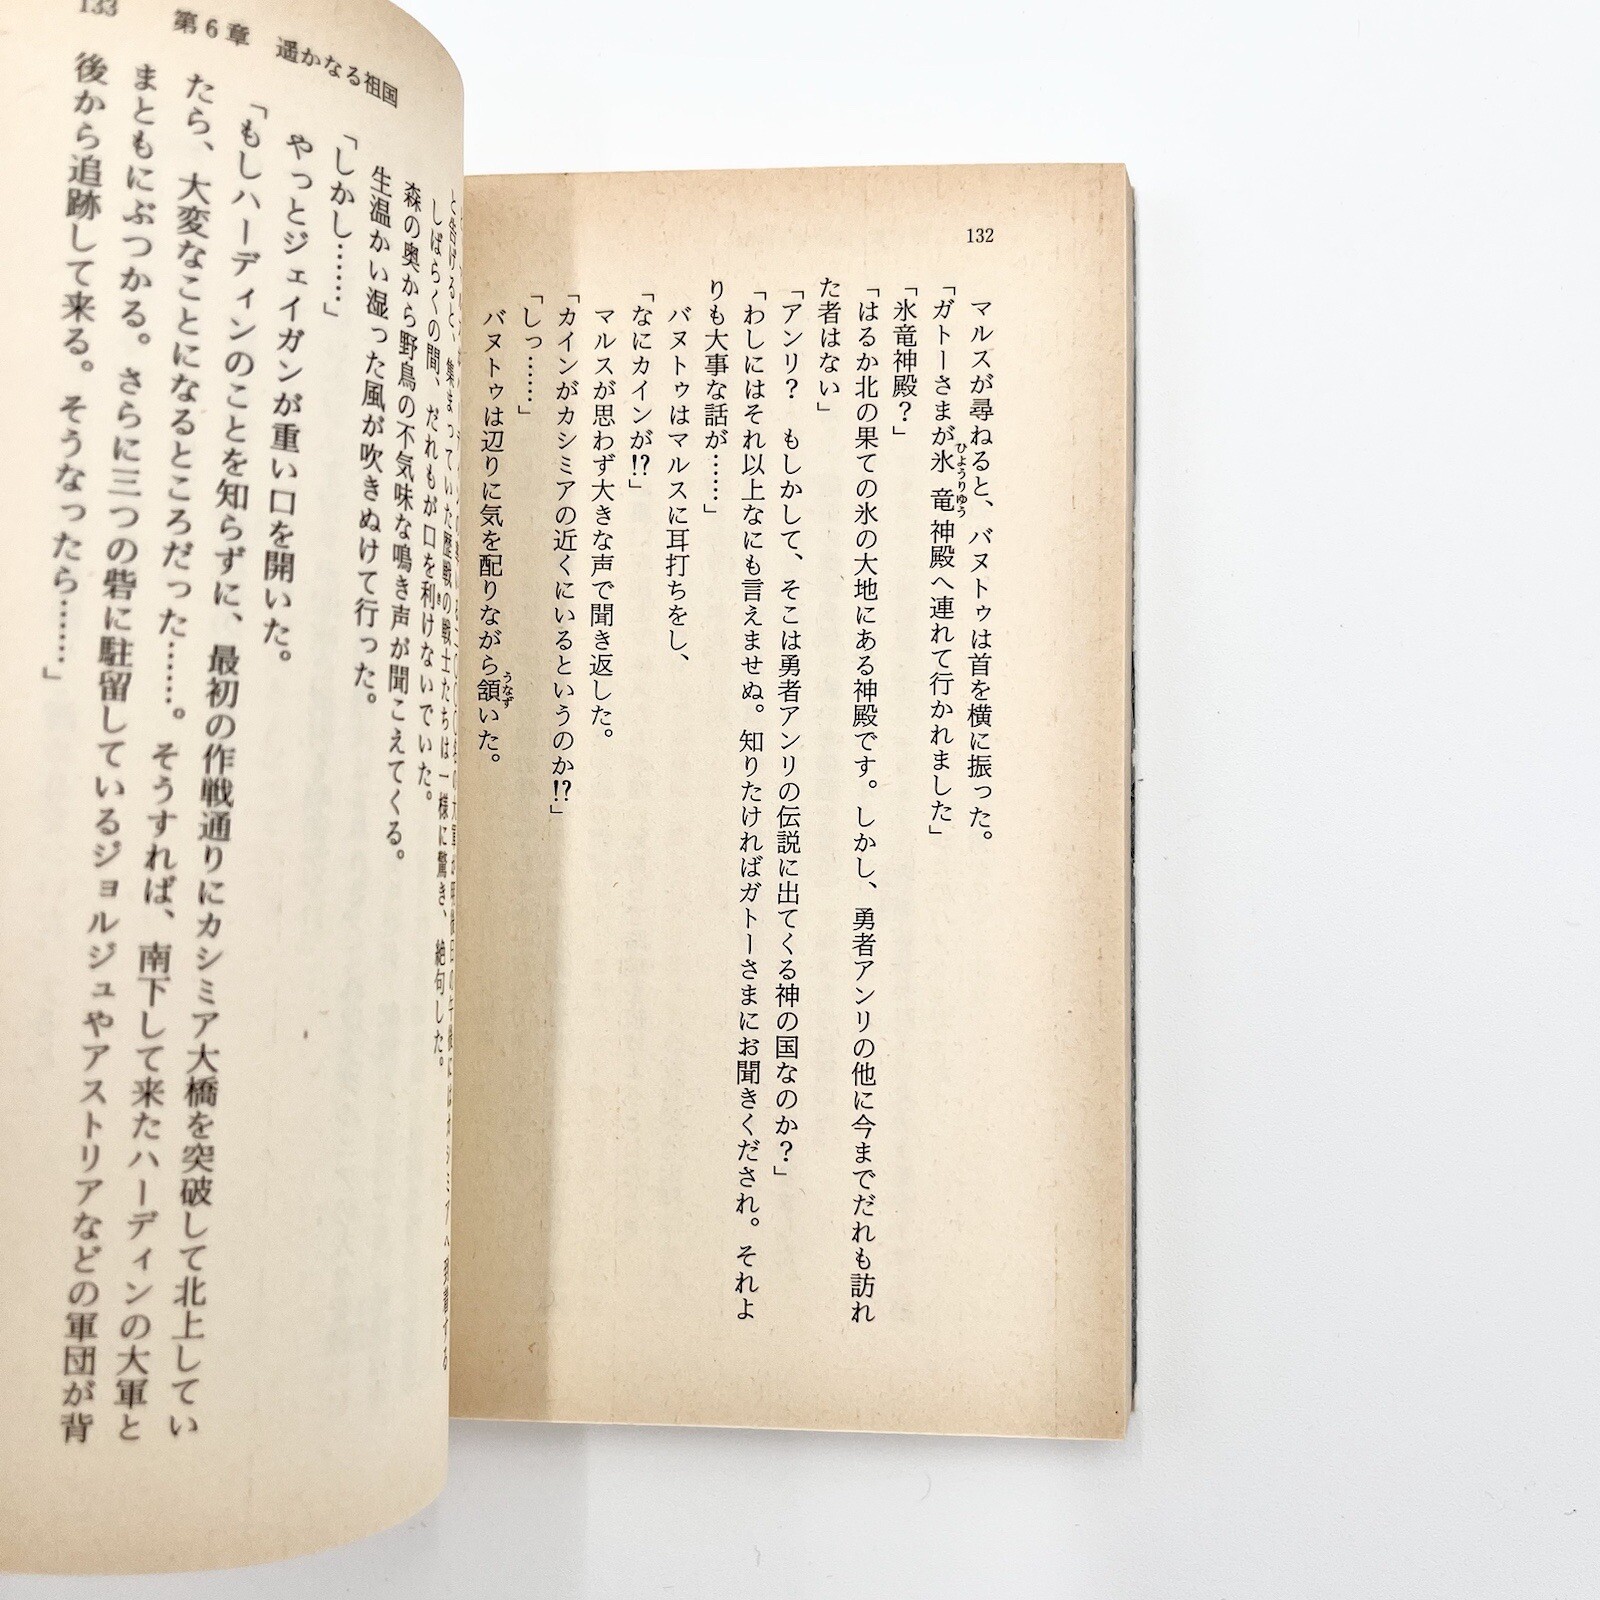 132
マルスが尋ねると、バヌトゥは首を横に振った。
「ガトーさまが氷竜神殿へ連れて行かれました」
ひようりゆう
「氷竜神殿？」
「はるか北の果ての氷の大地にある神殿です。しかし、勇者アンリの他に今までだれも訪れ
た者はない」
「アンリ？　もしかして、そこは勇者アンリの伝説に出てくる神の国なのか？」
「わしにはそれ以上なにも言えませぬ。知りたければガトーさまにお聞きくだされ。それよ
りも大事な話が……」
バヌトゥはマルスに耳打ちをし、
「なにカインが!?」
マルスが思わず大きな声で聞き返した。
「カインがカシミアの近くにいるというのか!?」
「しっ……」
バヌトゥは辺りに気を配りながら頷いた。
うなず
133
第6章　遥かなる祖国
と告げると、集まっていた歴戦の戦士たちは一様に驚き、絶句した。
しばらくの間、だれもが口を利けないでいた。
き
森の奥から野鳥の不気味な鳴き声が聞こえてくる。
生温かい湿った風が吹きぬけて行った。
「しかし……」
やっとジェイガンが重い口を開いた。
「もしハーディンのことを知らずに、最初の作戦通りにカシミア大橋を突破して北上してい
たら、大変なことになるところだった……。そうすれば、南下して来たハーディンの大軍と
まともにぶつかる。さらに三つの砦に駐留しているジョルジュやアストリアなどの軍団が背
後から追跡して来る。そうなったら……」